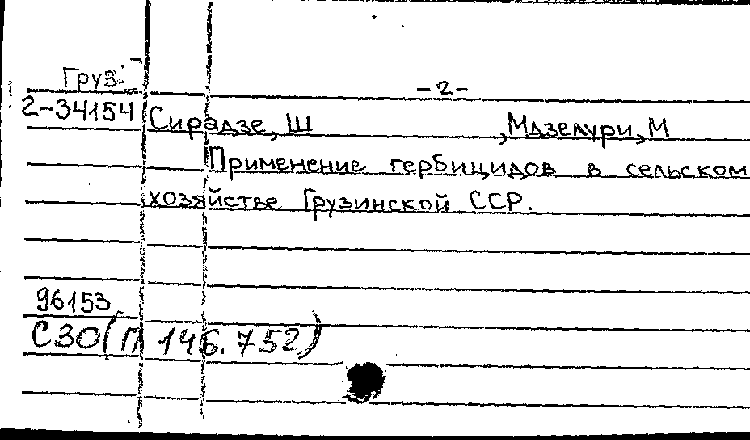 Груз.
-2-
2-34154
Сирадзе, Ш , Мдзелури, М
Применение гербицидов в сельском
хозяйстве Грузинской ССР.
96153
СЗО(П 146.752)